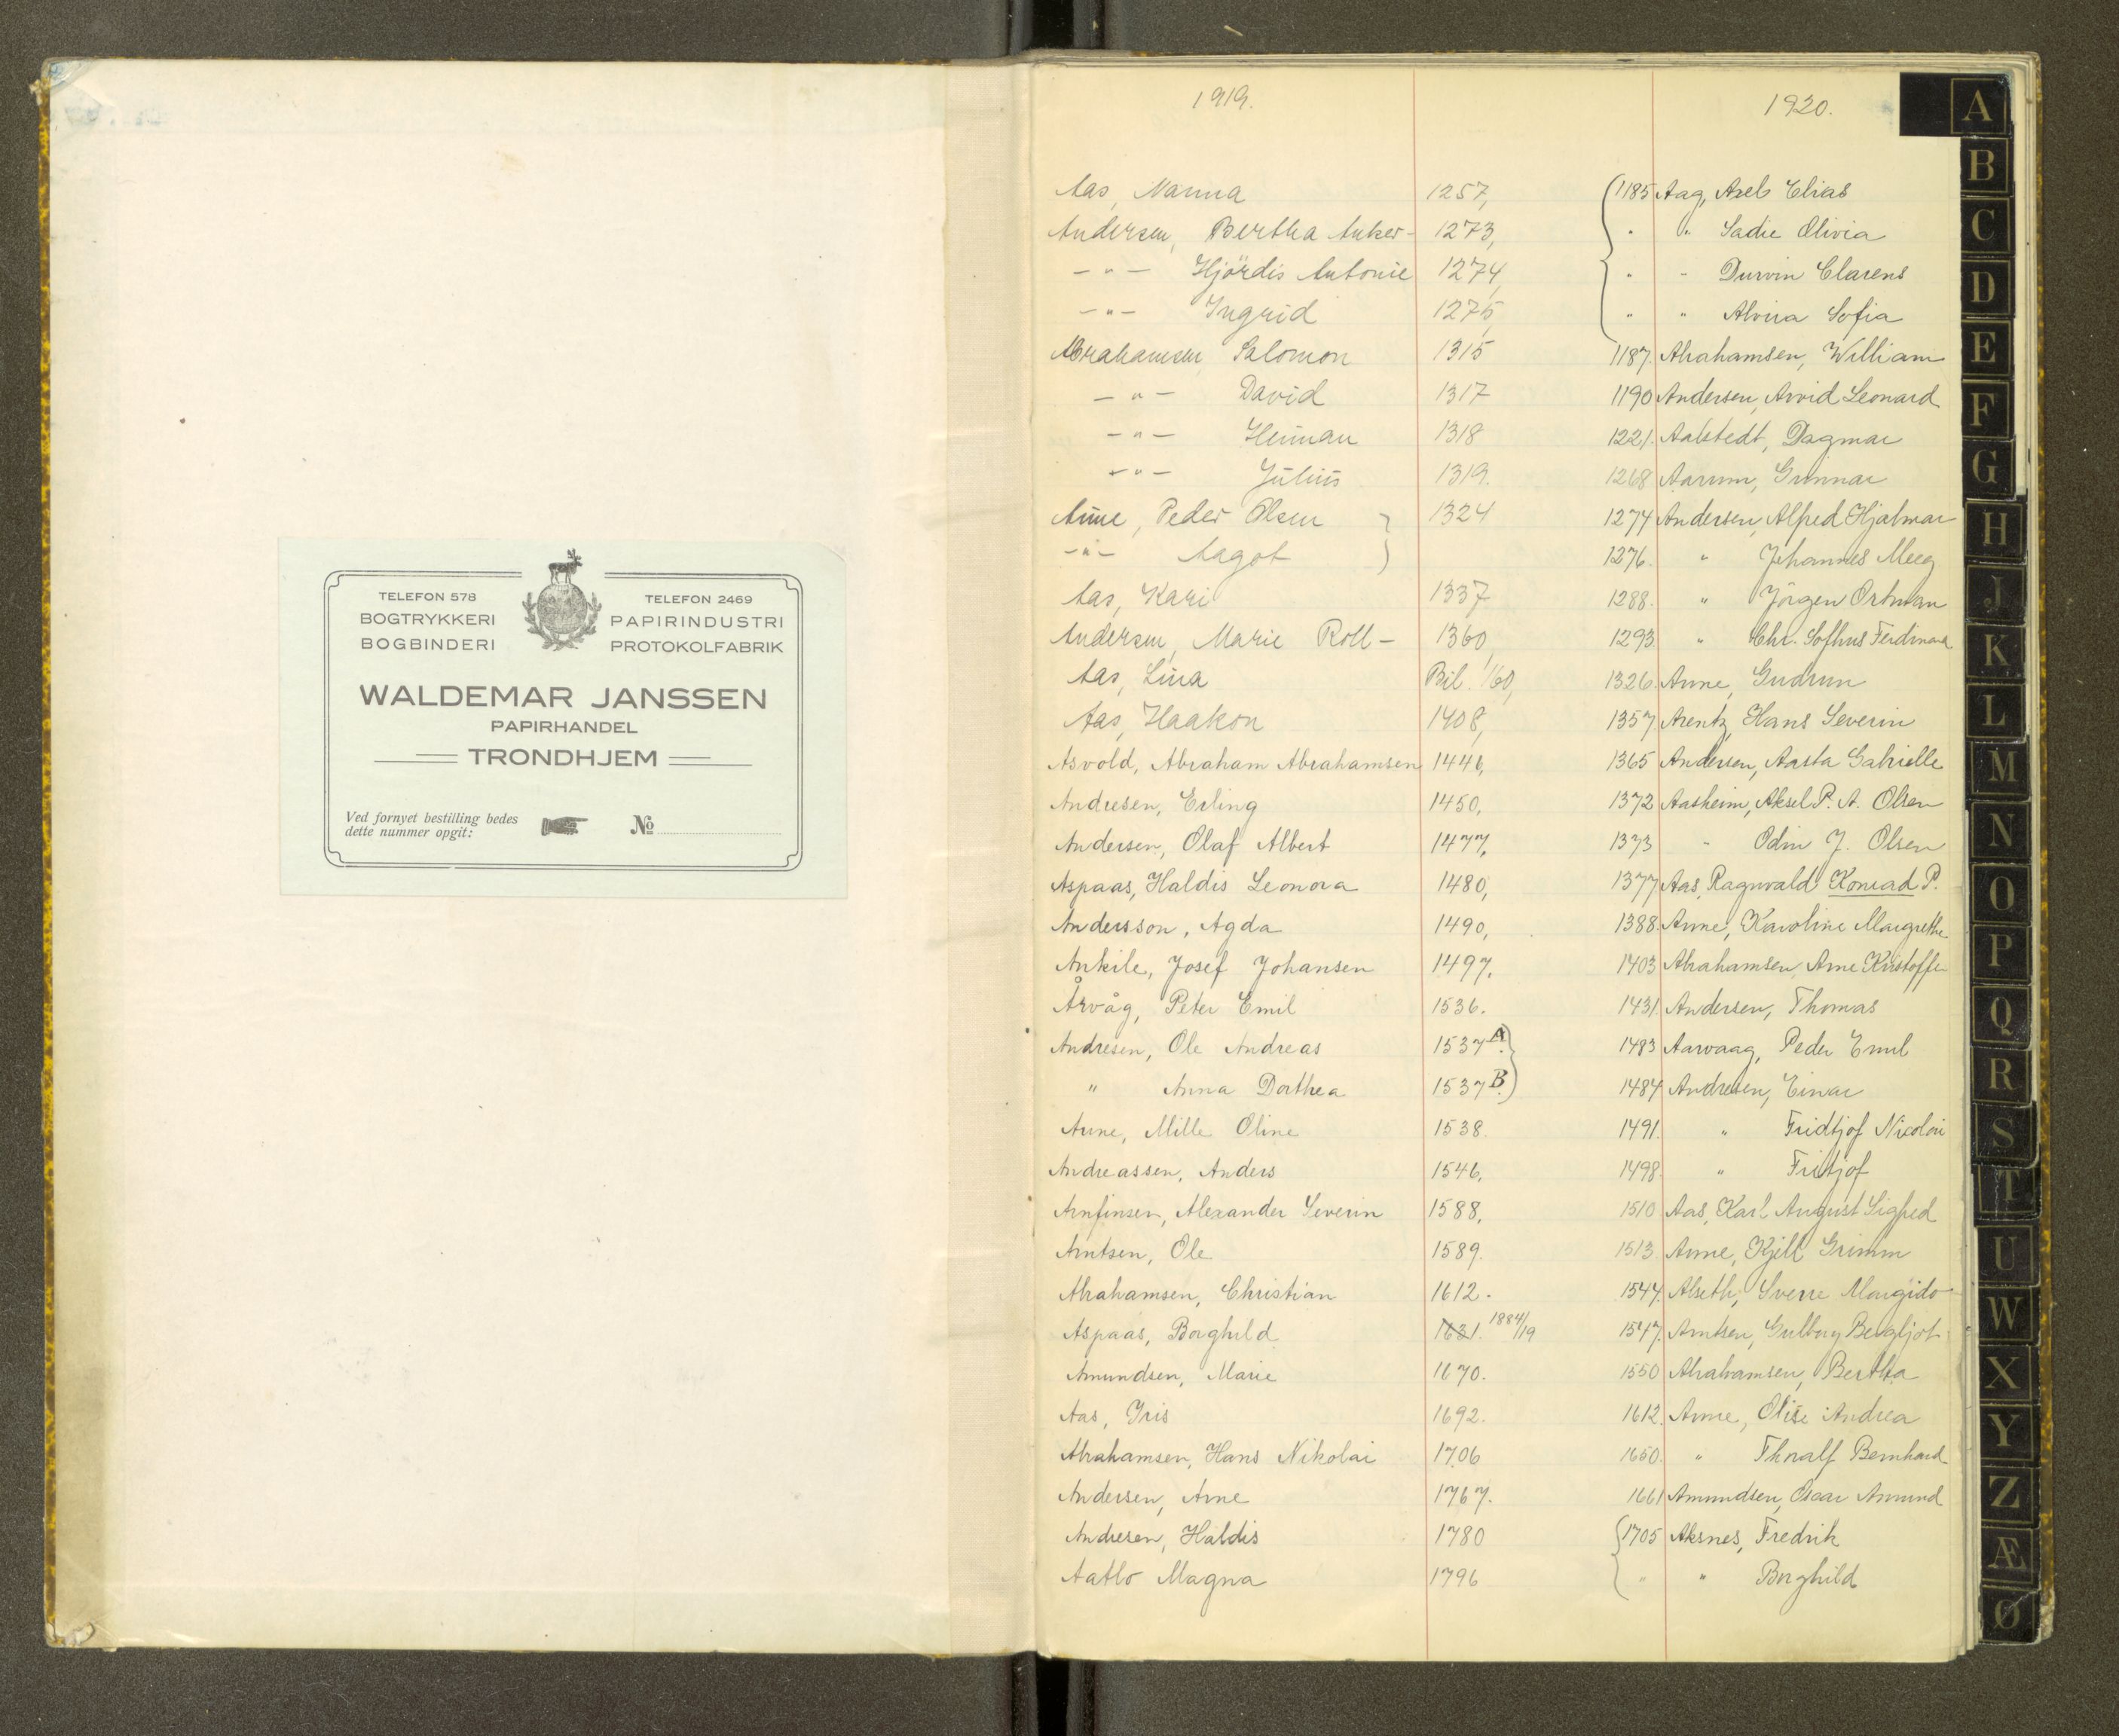 TELEFON 578
BOGTRYKKERI
BOGBINDERI
TELEFON 2469
PAPIRINDUSTRI
PROTOKOLFABRIK
WALDEMAR JANSSEN
PAPIRHANDEL
TRONDHJEM
Ved fornyet bestilling bedes
dette nummer opgit:
No
1919.
Aas, Nanna 1257,
Andersen, Bertha Anker- 1273,
-"- Hjördis Antonie 1274,
-"- Ingrid 1275,
Abrahamsen, Salomon 1315
-"- David 1317
-"- Heiman 1318
-"- Julius 1319.
Aune, Peder Olsen 1324
-"- Aagot
Aas, Kari 1337
Andersen, Marie Roll- 1360,
Aas, Lina Bil. 1/60,
Aas, Haakon 1408,
Asvold, Abraham Abrahamsen 1446,
Andresen, Erling 1450,
Andersen, Olaf Albert 1477,
Aspaas, Haldis Leonora 1480,
Andersson, Agda 1490,
Ankile, Josef Johansen 1497,
Årvåg, Peter Emil 1536.
Andresen, Ole Andreas 1537 A.
" Anna Dorthea 1537 B.
Aune, Mille Oline 1538.
Andreassen, Anders 1546,
Arnfinsen, Alexander Severin 1588,
Arntsen, Ole 1589.
Abrahamsen, Christian 1612.
Aspaas, Borghild 1631. 1884/19
Amundsen, Marie 1670.
Aas, Iris 1692.
Abrahamsen, Hans Nikolai 1706
Andersen, Arne 1767.
Andresen, Haldis 1780
Aatlo Magna 1796
1920.
1185 Aag, Axel Elias
" " Sadie Olivia
" " Durvin Clarens
" " Alvira Sofia
1187. Abrahamsen, William
1190 Andersen, Arvid Leonard
1221. Aalstedt, Dagmar
1268 Aarum, Gunnar
1274 Andersen, Alfred Hjalmar
1276. " Johannes Meeg
1288. " Jörgen Ortman
1293. " Chr. Sofhus Ferdinand
1326. Aune, Gudrun
1357. Arentz, Hans Severin
1365 Andersen, Aasta Gabrielle
1372 Aasheim, Aksel P. A. Olsen
1373 " Odin J. Olsen
1377 Aas, Ragnvald Konrad P.
1388. Aune, Karoline Margrethe
1403 Abrahamsen, Arne Kristoffer
1431. Andersen, Thomas
1483 Aarvaag, Peder Emil
1484 Andresen, Einar
1491. " Fridtjof Nicolai
1498. " Fritjof
1510 Aas, Karl August Sigfred
1513. Aune, Kjell Grimm
1544. Alseth, Sverre Margido
1547. Arntsen, Gulborg Bergljot
1550 Abrahamsen, Bertha
1612. Aune, Olise Andrea
1650. " Thoralf Bernhard
1661 Amundsen, Oscar Amund
1705 Aksnes, Fredrik
" " Borghild
A
B
C
D
E
F
G
H
J
K
L
M
N
O
P
Q
R
S
T
U
W
X
Y
Z
Æ
Ø